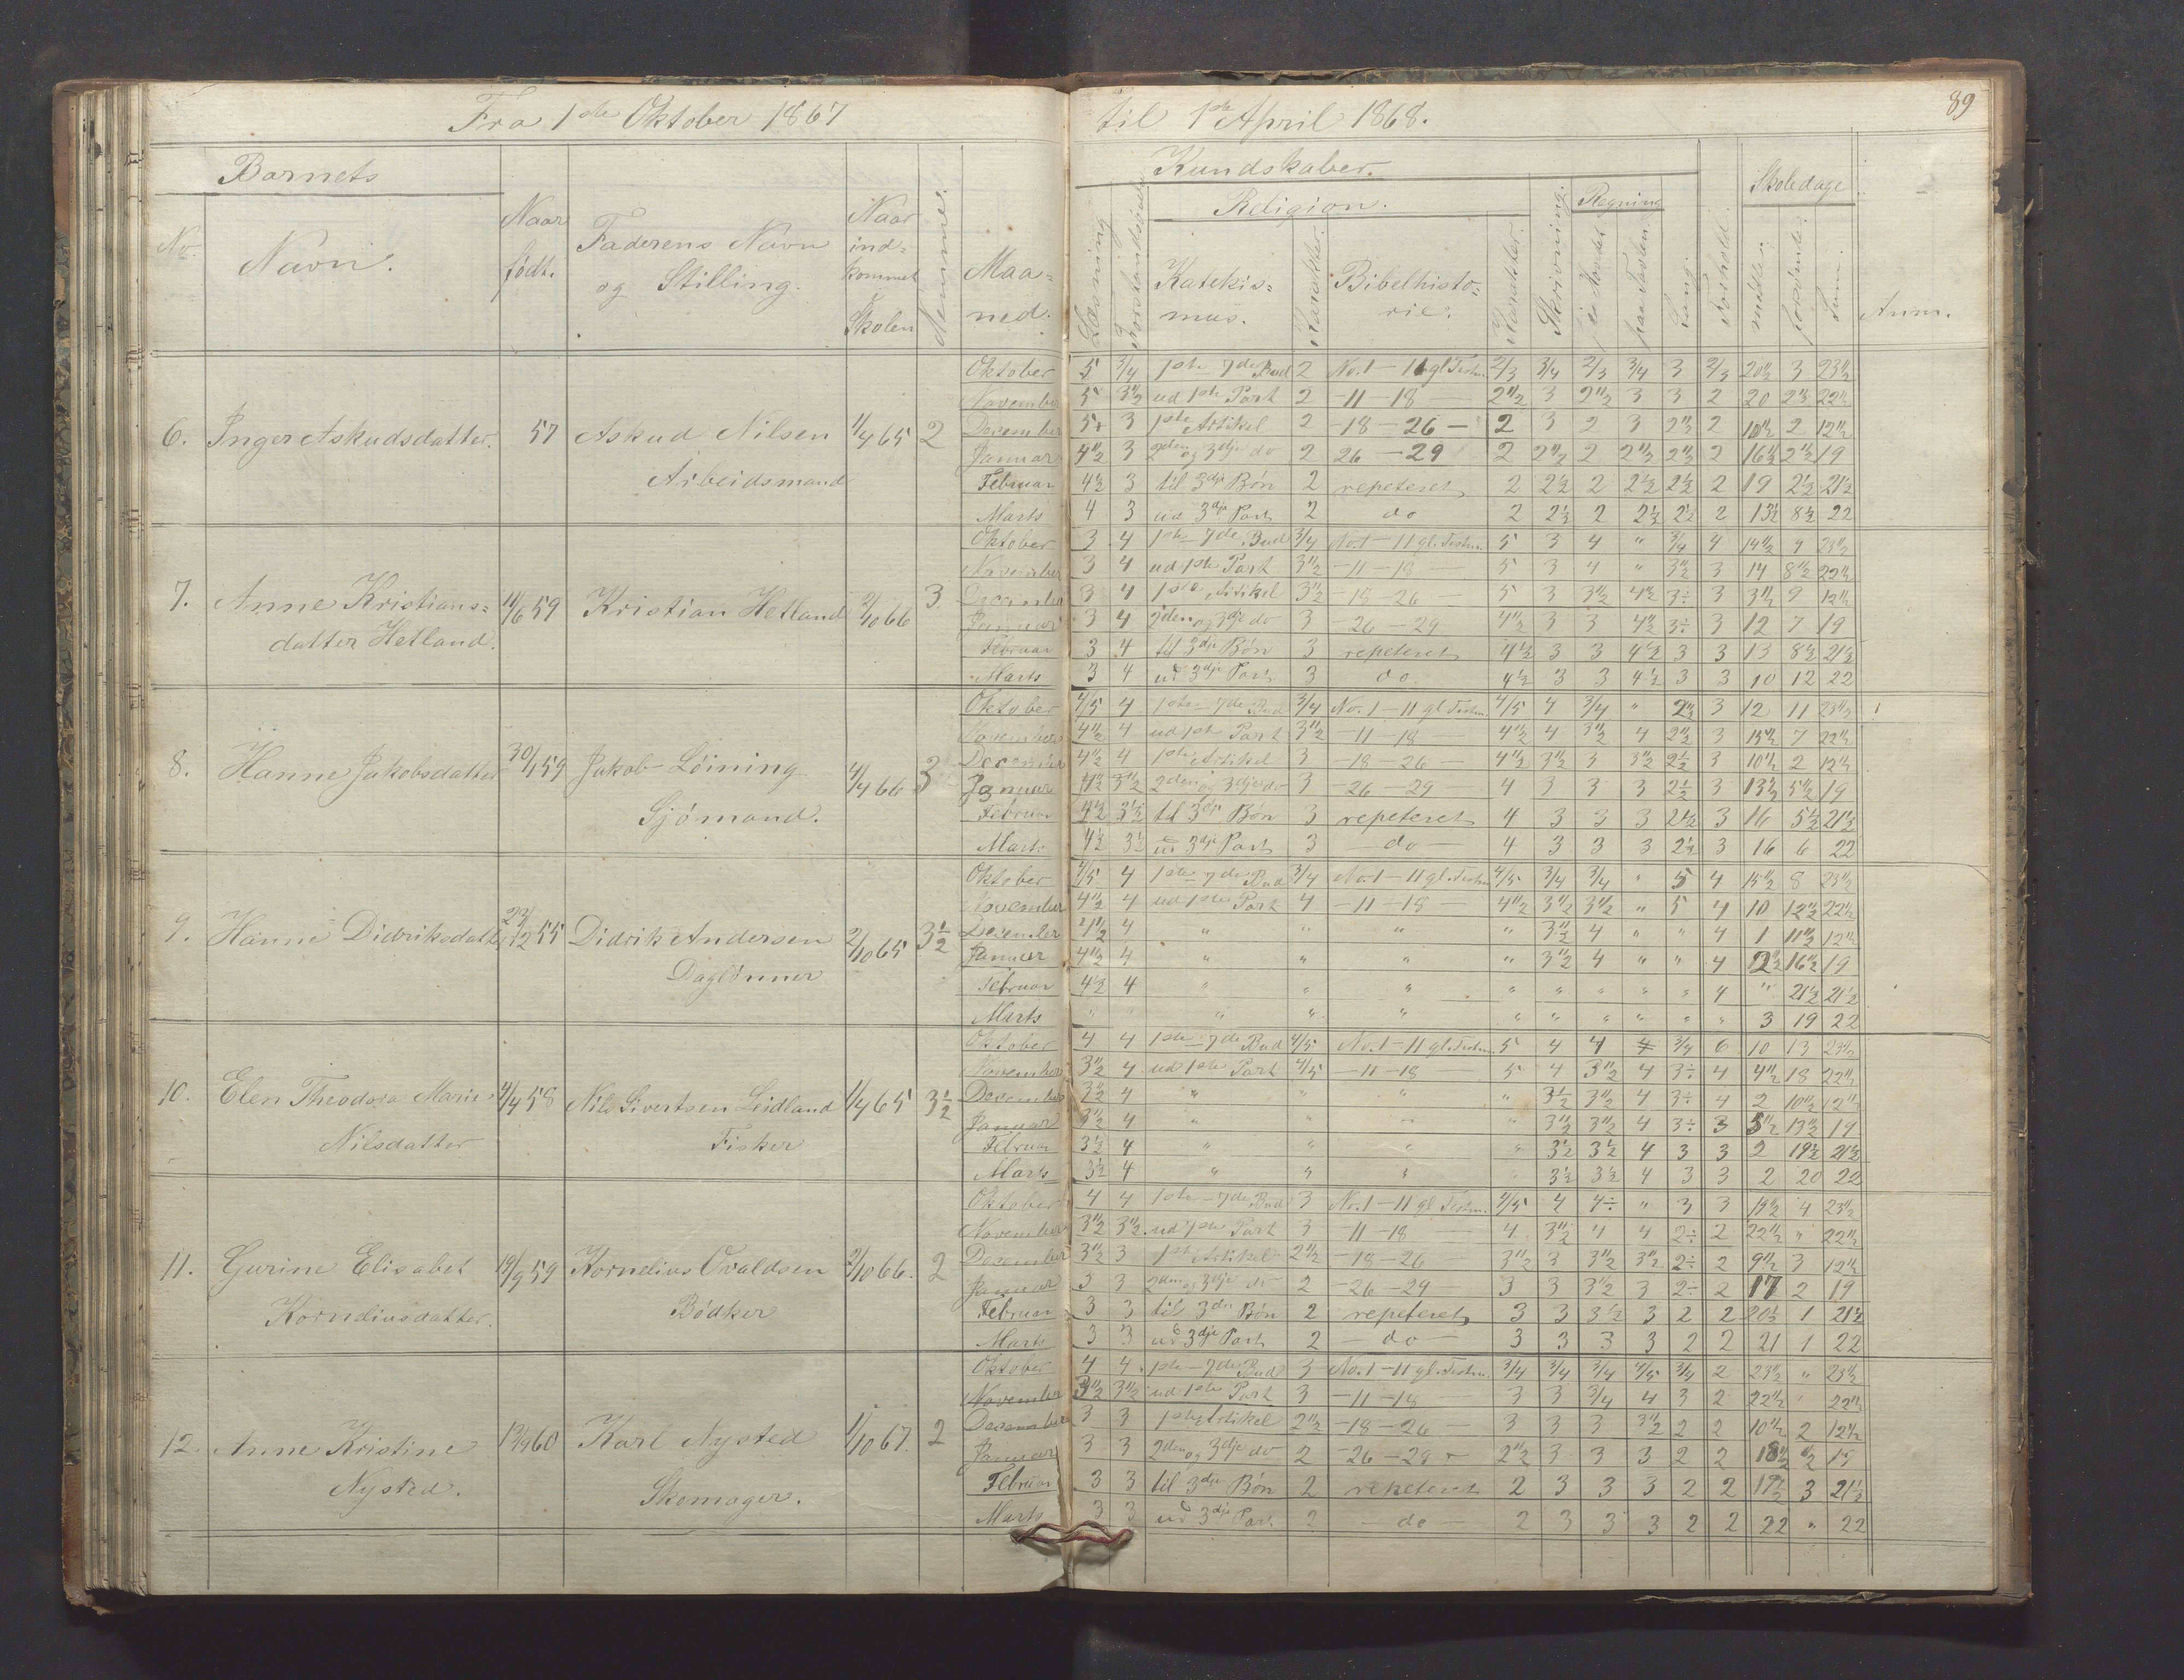 Fra 1ste Oktober 1867 til 1ste April 1868. 89
Barnets Kundskaber. Skoledage
No. Navn. Naar født. Faderens Navn og Stilling. Naar indkommet Skolen Nemme. Maaned. Læsning Religion. Katekismus. Karakter. Bibelhistorie. Karakter. Skrivning. Regning i Hovedet paa Tavlen. Sang. Forhold. mødte. forsømte. Sum. Anm.
6. Inger Askudsdatter. 57 Askud Nilsen Arbeidsmand 1/4 65 2
Oktober 5 3/4 1ste - 7de Bud 2 No. 1 - 11 gl Testm. 2/3 3/4 2/3 3/4 3 2/3 20½ 3 23½
November 5 3½ ud 1ste Part 2 - 11 - 18 - 2½ 3 2½ 3 3 2 20 2½ 22½
December 5 3 1ste Artikel 2 - 18 - 26 - 2 3 2 3 2½ 2 10½ 2 12½
Januar 4½ 3 2den og 3dje do 2 26 - 29 2 2½ 2 2½ 2½ 2 16½ 2½ 19
Februar 4½ 3 til 3dje Bøn 2 repeteret 2 2½ 2 2½ 2½ 2 19 2½ 21½
Marts 4 3 ud 3dje Part 2 do 2 2½ 2 2½ 2½ 2 13½ 8½ 22
7. Anne Kristiansdatter Hetland. 11/6 59 Kristian Hetland 2/10 66 3
Oktober 3 4 1ste - 7de Bud 3/4 No. 1 - 11 gl. Testm. 5 3 4 " 3/4 4 14½ 9 23½
November 3 4 ud 1ste Part 3½ - 11 - 18 - 5 3 4 " 3½ 3 14 8½ 22½
December 3 4 1ste Artikel 3½ - 18 - 26 - 5 3 3½ 4½ 3÷ 3 3½ 9 12½
Januar 3 4 2den og 3dje do 3 - 26 - 29 4½ 3 3 4½ 3÷ 3 12 7 19
Februar 3 4 til 3dje Bøn 3 repeteret 4½ 3 3 4½ 3 3 13 8½ 21½
Marts 3 4 ud 3dje Part 3 do 4½ 3 3 4½ 3 3 10 12 22
8. Hanne Jakobsdatter 30/1 59 Jakob Löining Sjömand. 4/4 66 3
Oktober 4/5 4 1ste - 7de Bud 3/4 No. 1 - 11 gl Testm. 4/5 4 3/4 " 2½ 3 12 11 23½
November 4½ 4 ud 1ste Part 3½ - 11 - 18 - 4½ 4 3½ 4 2½ 3 15½ 7 22½
December 4½ 4 1ste Artikel 3 - 18 - 26 - 4½ 3½ 3 3½ 2½ 3 10½ 2 12½
Januar 4½ 3½ 2den og 3dje do 3 - 26 - 29 - 4 3 3 3 2½ 3 13½ 5½ 19
Februar 4½ 3½ til 3dje Bøn 3 repeteret 4 3 3 3 2½ 3 16 5½ 21½
Marts 4½ 3½ ud 3dje Part 3 - do - 4 3 3 3 2½ 3 16 6 22
9. Hanne Didriksdatter 23/12 55 Didrik Andersen Daglönner 2/10 65 3½
Oktober 4/5 4 1ste - 7de Bud 3/4 No. 1 - 11 gl. Testm. 4/5 3/4 3/4 " 5 4 15½ 8 23½
November 4½ 4 ud 1ste Part 4 - 11 - 18 - 4½ 3½ 3½ " 5 4 10 12½ 22½
December 4½ 4 " " " " 3½ 4 " " 4 1 11½ 12½
Januar 4½ 4 " " " " 3½ 4 " " 4 2½ 16½ 19
Februar 4½ 4 " " " " " " " " 4 " 21½ 21½
Marts " " " " " " " " " " " 3 19 22
10. Elen Theodora Marie Nilsdatter 4/4 58 Nils Sivertsen Leidland Fisker 1/4 65 3½
Oktober 4 4 1ste - 7de Bud 4/5 No. 1 - 11 gl. Testm. 5 4 4 4 3/4 6 10 13 23½
November 3½ 4 ud 1ste Part 4/5 - 11 - 18 5 4 3½ 4 3÷ 4 4½ 18 22½
December 3½ 4 " " " " 3½ 3½ 4 3÷ 4 2 10½ 12½
Januar 3½ 4 " " " " 3½ 3½ 4 3÷ 3 5½ 13½ 19
Februar 3½ 4 " " " " 3½ 3½ 4 3 3 2 19½ 21½
Marts 3½ 4 " " " " 3½ 3½ 4 3 3 2 20 22
11. Gurine Elisabet Korneliusdatter. 19/9 59 Kornelius Ovaldsen Bödker 2/10 66. 2
Oktober 4 4 1ste - 7de Bud 3 No. 1 - 11 gl Testm. 4/5 4 4÷ " 3 3 19½ 4 23½
November 3½ 3½ ud 1ste Part 3 - 11 - 18 - 4 3½ 4 4 2÷ 2 22½ " 22½
December 3½ 3 1ste Artikel 2½ - 18 - 26 3½ 3 3½ 3½ 2÷ 2 9½ 3 12½
Januar 3 3 2den og 3dje do 2 - 26 - 29 3 3 3½ 3 2÷ 2 17 2 19
Februar 3 3 til 3die Bøn 2 repeteret 3 3 3½ 3 2 2 20½ 1 21½
Marts 3 3 ud 3dje Part 2 - do - 3 3 3 3 2 2 21 1 22
12. Anne Kristine Nysted. 60 Karl Nysted Skomager. 1/10 67. 2
Oktober 4 4 1ste - 7de Bud 3 No. 1 - 11 gl. Testm. 3/4 3/4 3/4 4/5 3/4 2 23½ " 23½
November 3½ 3½ ud 1ste Part 3 - 11 - 18 - 3 3 3/4 4 3 2 22½ " 22½
December 3 3 1ste Artikel 2½ - 18 - 26 - 3 3 3 3½ 2 2 10½ 2 12½
Januar 3 3 2den og 3dje do 2 - 26 - 29 - 2½ 3 3 3 2 2 18½ ½ 19
Februar 3 3 til 3dje Bøn 2 repeteret 2 3 3 3 2 2 3 21½
Marts 3 3 ud 3dje Part 2 - do - 2 3 3 3 2 2 22 " 22